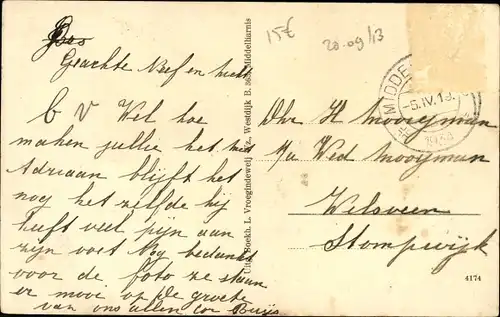 15€
20-09/13
Geachte Neef en nicht
C V Wel hoe
maken jullie het hier
Adriaan blijft het
nog het zelfde hij
heeft veel pijn aan
zijn voet Nog bedankt
voor de foto ze staan
er mooi op De groete
van ons allen Cor Buijs
Boekh. L. Vroegindeweij Jz., Westdijk B. Middelharnis
MIDDE
-5.IV.13
Dhr K Mooijman
p/a Wed Mooijman
Welsveen
Stompwijk
4174